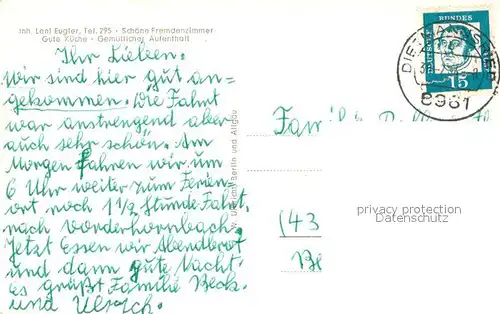 Inh. Leni Eugler, Tel. 295 · Schöne Fremdenzimmer
Gute Küche · Gemütlicher Aufenthalt
Ihr Lieben.
Wir sind hier gut an-
gekommen. Die Fahrt
war anstrengend aber
auch sehr schön. Am
Morgen fahren wir um
6 Uhr weiter zum Ferien-
ort noch 1 1/2 Stunde Fahrt,
nach Vorderhornbach.
Jetzt Essen wir Abendbrot
und dann gute Nacht
es grüßt Familie Beck
und Ulrich.
Berlin und Allgäu
DEUTSCHE BUNDES
15
8961
Fam
(43
Be
privacy protection
Datenschutz